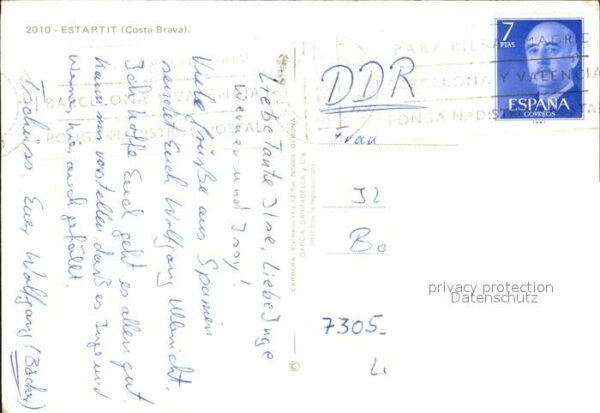 2010 - ESTARTIT (Costa Brava).
Liebe Tante Ilse, Liebe Inge
Werner und Issy!
Viele Grüße aus Spanien
sendet Euch Wolfgang Ullbricht.
Ich hoffe Euch geht es allen gut.
Kann mir vorstellen, daß es Inge und
Werner hier auch gefällt.
Tschüss. Euer Wolfgang (Bäcker)
CARRERA
GARCIA GARRABELLA y Cía
(Prohibida la reproducción)
©
DDR
Frau
Il
Bo
7305
L
PARA BILBAO, MADRID
BARCELONA Y VALENCIA
PONGA Nº DISTRITO POSTAL
PARA BILBAO, MADRID
BARCELONA Y VALENCIA
PONGA Nº DISTRITO POSTAL
7
PTAS
ESPAÑA
CORREOS
privacy protection
Datenschutz